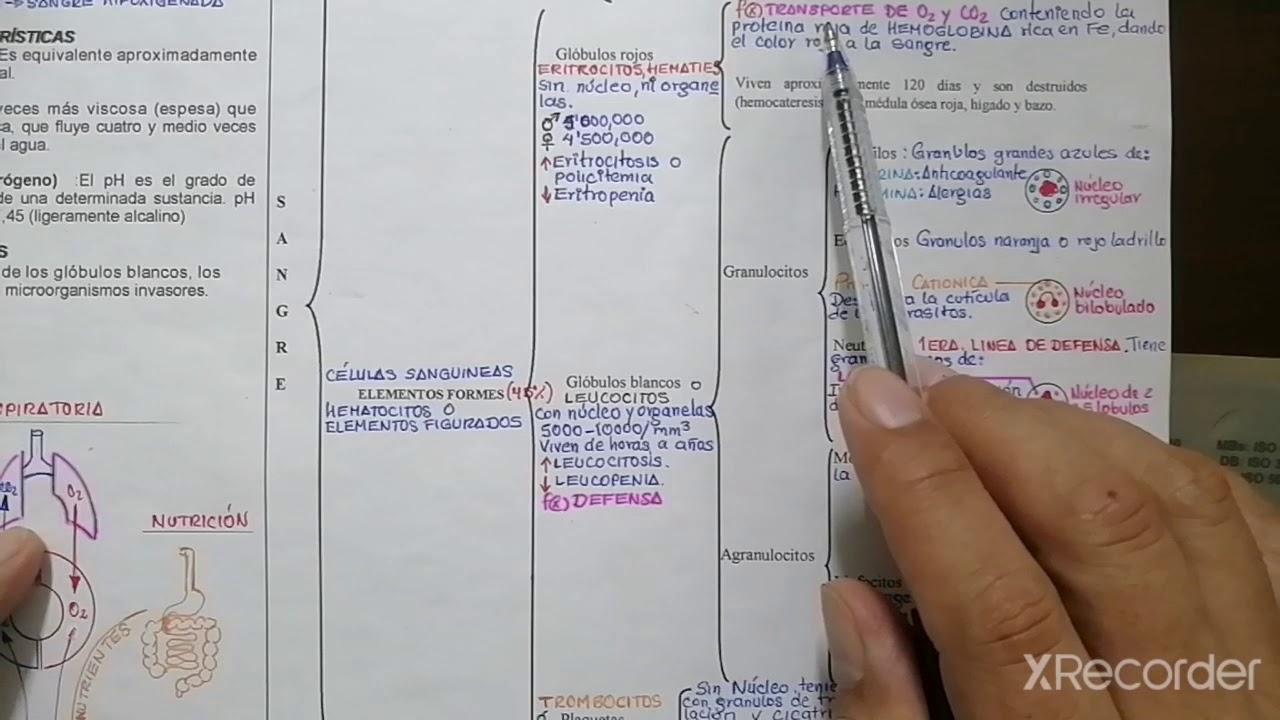 SANGRE HIPOXIGENADA
RÍSTICAS
Es equivalente aproximadamente
al.
veces más viscosa (espesa) que
a, que fluye cuatro y medio veces
l agua.
rógeno) :El pH es el grado de
de una determinada sustancia. pH
,45 (ligeramente alcalino)
S
de los glóbulos blancos, los
microorganismos invasores.
PIRATORIA
O2
NUTRICIÓN
O2
NUTRIENTES
S
A
N
G
R
E
CÉLULAS SANGUINEAS
ELEMENTOS FORMES (45%)
HEMATOCITOS O
ELEMENTOS FIGURADOS
Glóbulos rojos
ERITROCITOS, HEMATIES
Sin núcleo, ni organe
las.
♂ 5'000,000
♀ 4'500,000
↑ Eritrocitosis o
policitemia
↓ Eritropenia
Glóbulos blancos o
LEUCOCITOS
Con núcleo y organelas
5000-10000/mm3
Viven de horas a años
↑ LEUCOCITOSIS.
↓ LEUCOPENIA.
f(x) DEFENSA
TROMBOCITOS
o Plaquetas
f(x) TRANSPORTE DE O2 y CO2 conteniendo la
proteina roja de HEMOGLOBINA rica en Fe, dando
el color ro a la sangre.
Viven aprox mente 120 dias y son destruidos
(hemocateresis médula ósea roja, higado y bazo.
Granulocitos
ilos : Granulos grandes azules de:
RINA: Anticoagulante
H MINA: Alergias
Núcleo
irregular
E os Granulos naranja o rojo ladrillo
CATIONICA
Des a la cutícula
de rasitos.
Núcleo
bilobulado
Neut 1ERA. LINEA DE DEFENSA. Tiene
gran os de:
Núcleo de 2
5 lobulos
Agranulocitos
la
Sin Núcleo, tenie
con granulos de tr
lación y cicatri
MBs: ISO
DB: ISO
XRecorder